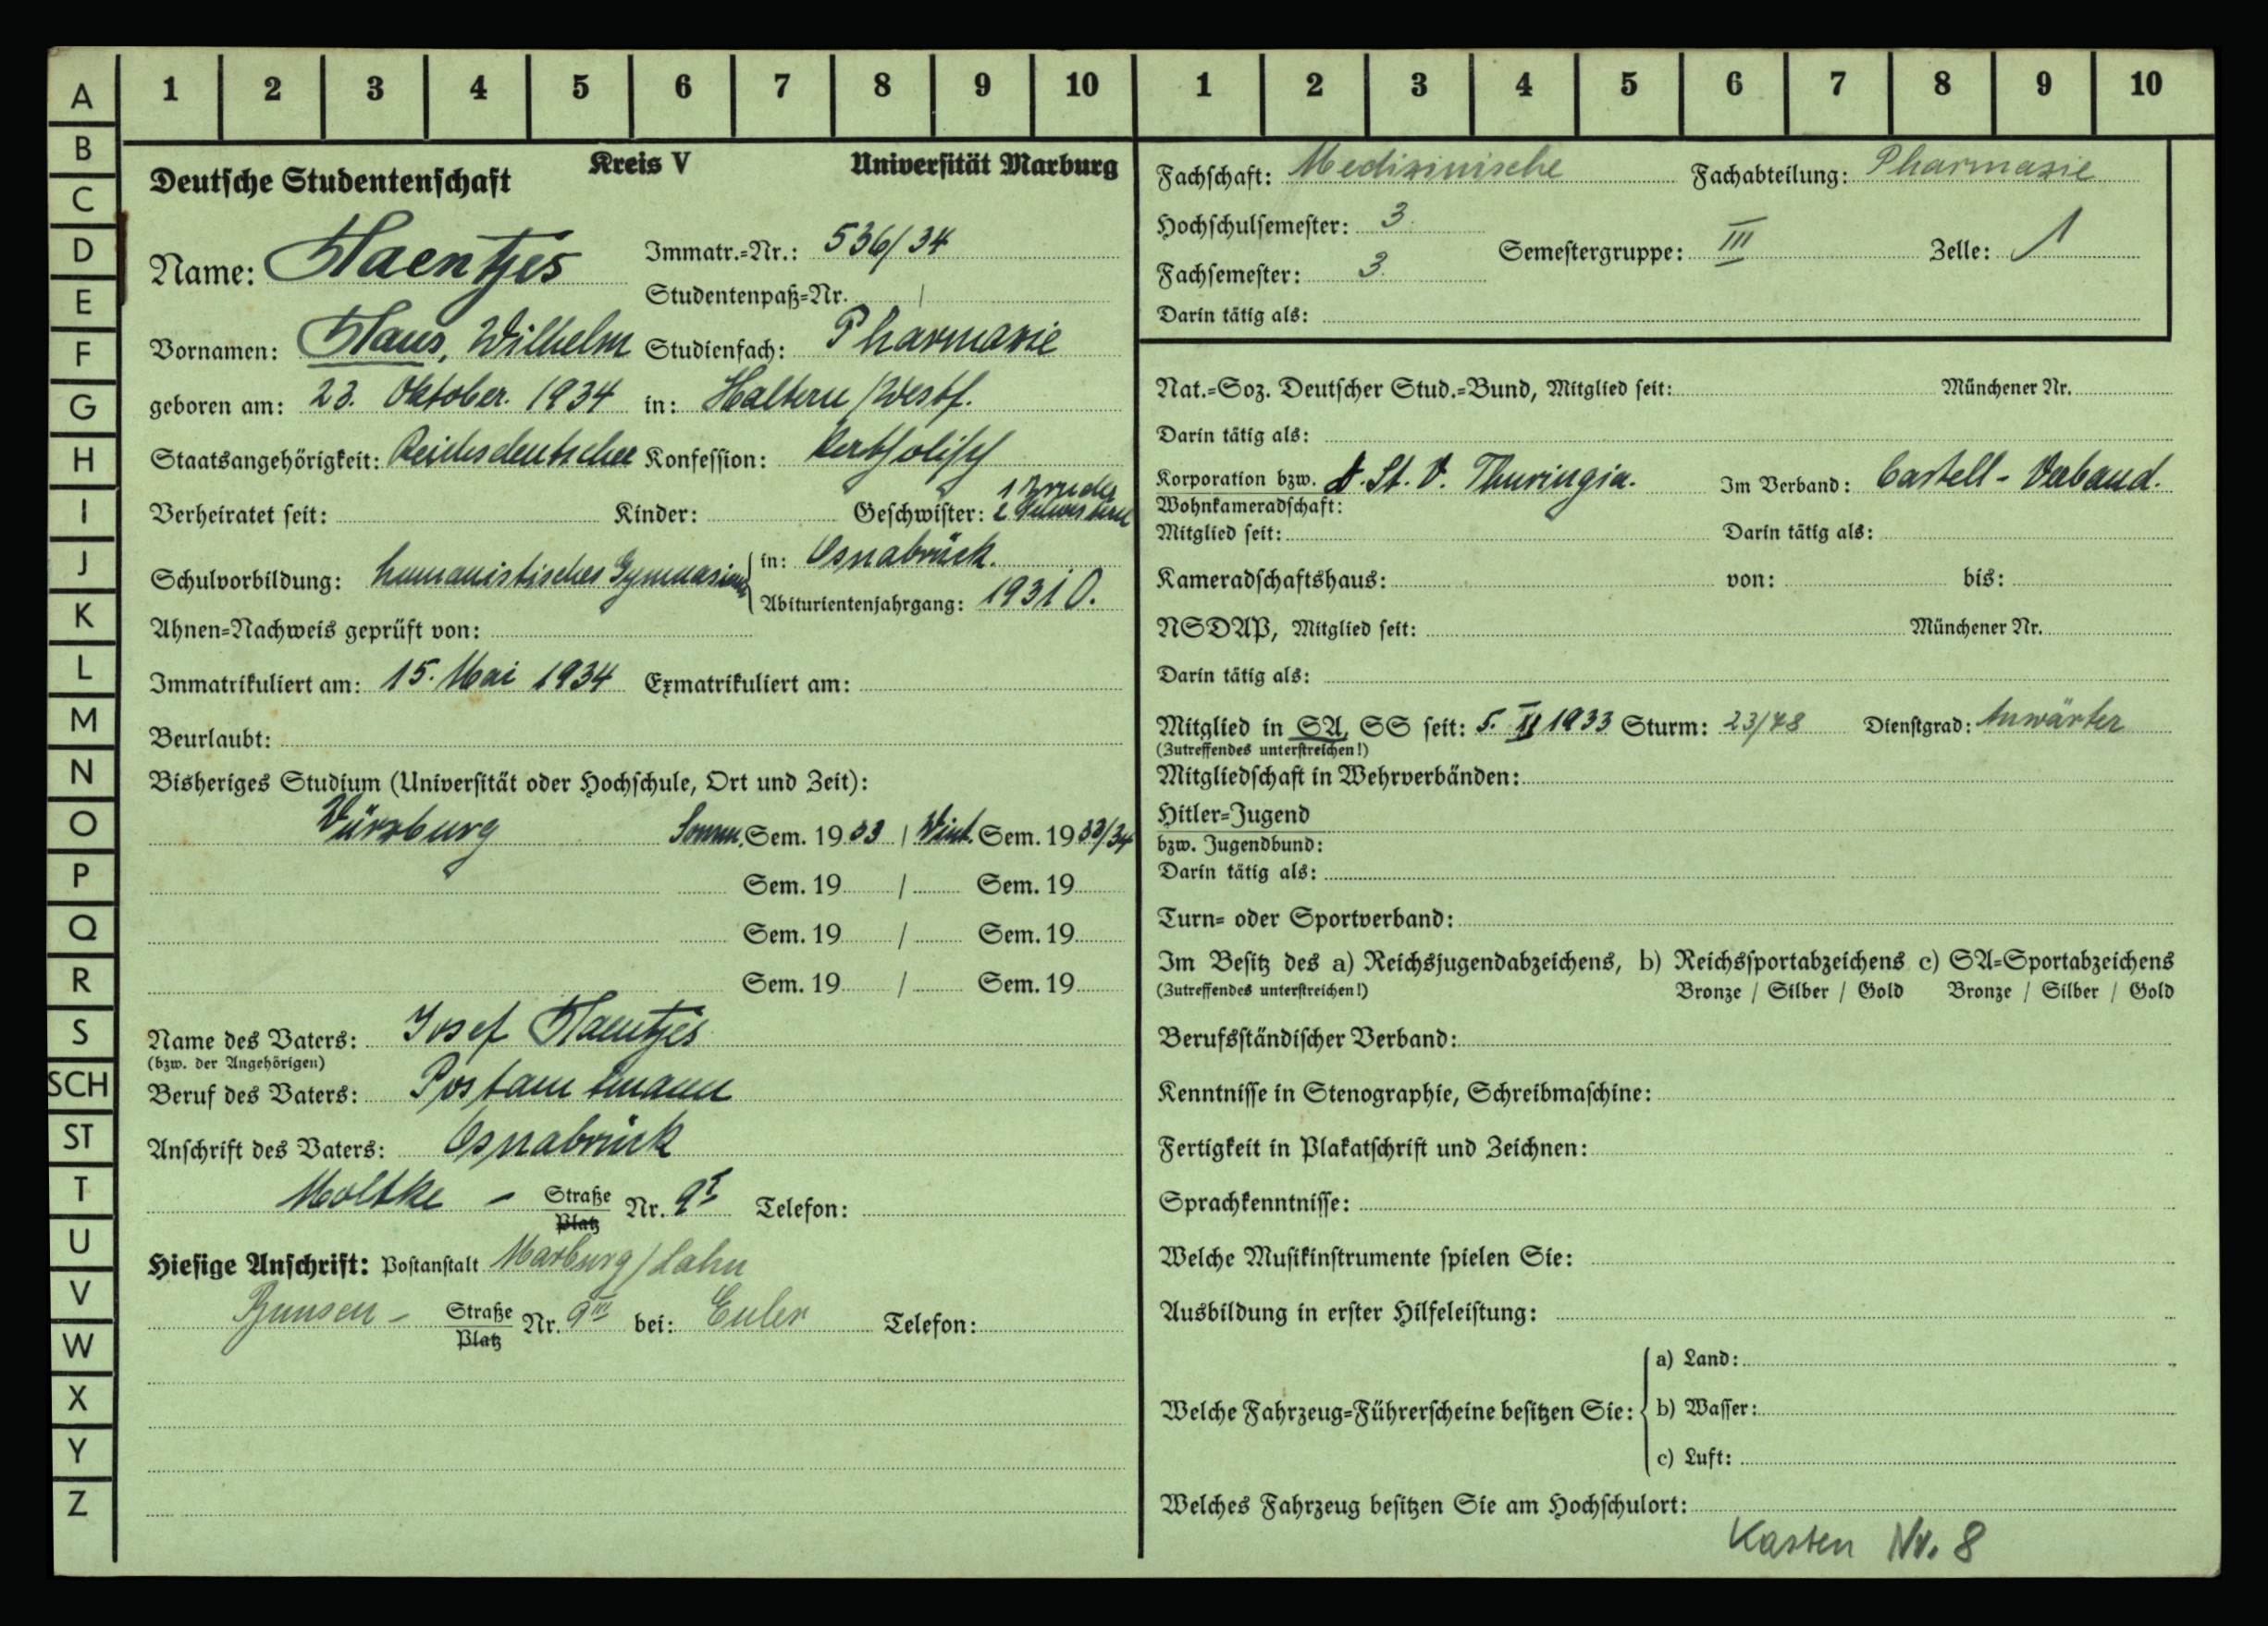 A
B
C
D
E
F
G
H
I
J
K
L
M
N
O
P
Q
R
S
SCH
ST
T
U
V
W
X
Y
Z
1 2 3 4 5 6 7 8 9 10
Deutsche Studentenschaft Kreis V Universität Marburg
Name: Haentjes Immatr.-Nr.: 536/34
Studentenpaß-Nr. /
Vornamen: Hans, Wilhelm Studienfach: Pharmazie
geboren am: 23. Oktober. 1934 in: Haltern/Westf.
Staatsangehörigkeit: Reichsdeutscher Konfession: katholisch
Verheiratet seit: Kinder: Geschwister: 1 Bruder
2 Schwestern
Schulvorbildung: humanistisches Gymnasium in: Osnabrück.
Abiturientenjahrgang: 1931 O.
Ahnen-Nachweis geprüft von:
Immatrikuliert am: 15. Mai 1934 Exmatrikuliert am:
Beurlaubt:
Bisheriges Studium (Universität oder Hochschule, Ort und Zeit):
Würzburg Somm. Sem. 1933 / Wint. Sem. 1933/34
Sem. 19 / Sem. 19
Sem. 19 / Sem. 19
Sem. 19 / Sem. 19
Name des Vaters: Josef Haentjes
(bzw. der Angehörigen)
Beruf des Vaters: Postamtmann
Anschrift des Vaters: Osnabrück
Moltke - Straße Nr. 9I Telefon:
Platz
Hiesige Anschrift: Postanstalt Marburg/Lahn
Bunsen - Straße Nr. 9III bei: Euler Telefon:
Platz
1 2 3 4 5 6 7 8 9 10
Fachschaft: Medizinische Fachabteilung: Pharmazie
Hochschulsemester: 3.
Semestergruppe: III Zelle: 1
Fachsemester: 3.
Darin tätig als:
Nat.-Soz. Deutscher Stud.-Bund, Mitglied seit: Münchener Nr.
Darin tätig als:
Korporation bzw. K.St.V. Thuringia. Im Verband: Cartell-Verband.
Wohnkameradschaft:
Mitglied seit: Darin tätig als:
Kameradschaftshaus: von: bis:
NSDAP, Mitglied seit: Münchener Nr.
Darin tätig als:
Mitglied in SA, SS seit: 5. 1933 Sturm: 23/48 Dienstgrad: Anwärter
(Zutreffendes unterstreichen!)
Mitgliedschaft in Wehrverbänden:
Hitler-Jugend
bzw. Jugendbund:
Darin tätig als:
Turn- oder Sportverband:
Im Besitz des a) Reichsjugendabzeichens, b) Reichssportabzeichens c) SA-Sportabzeichens
(Zutreffendes unterstreichen!) Bronze / Silber / Gold Bronze / Silber / Gold
Berufsständischer Verband:
Kenntnisse in Stenographie, Schreibmaschine:
Fertigkeit in Plakatschrift und Zeichnen:
Sprachkenntnisse:
Welche Musikinstrumente spielen Sie:
Ausbildung in erster Hilfeleistung:
a) Land:
Welche Fahrzeug-Führerscheine besitzen Sie: b) Wasser:
c) Luft:
Welches Fahrzeug besitzen Sie am Hochschulort:
Kasten Nr. 8